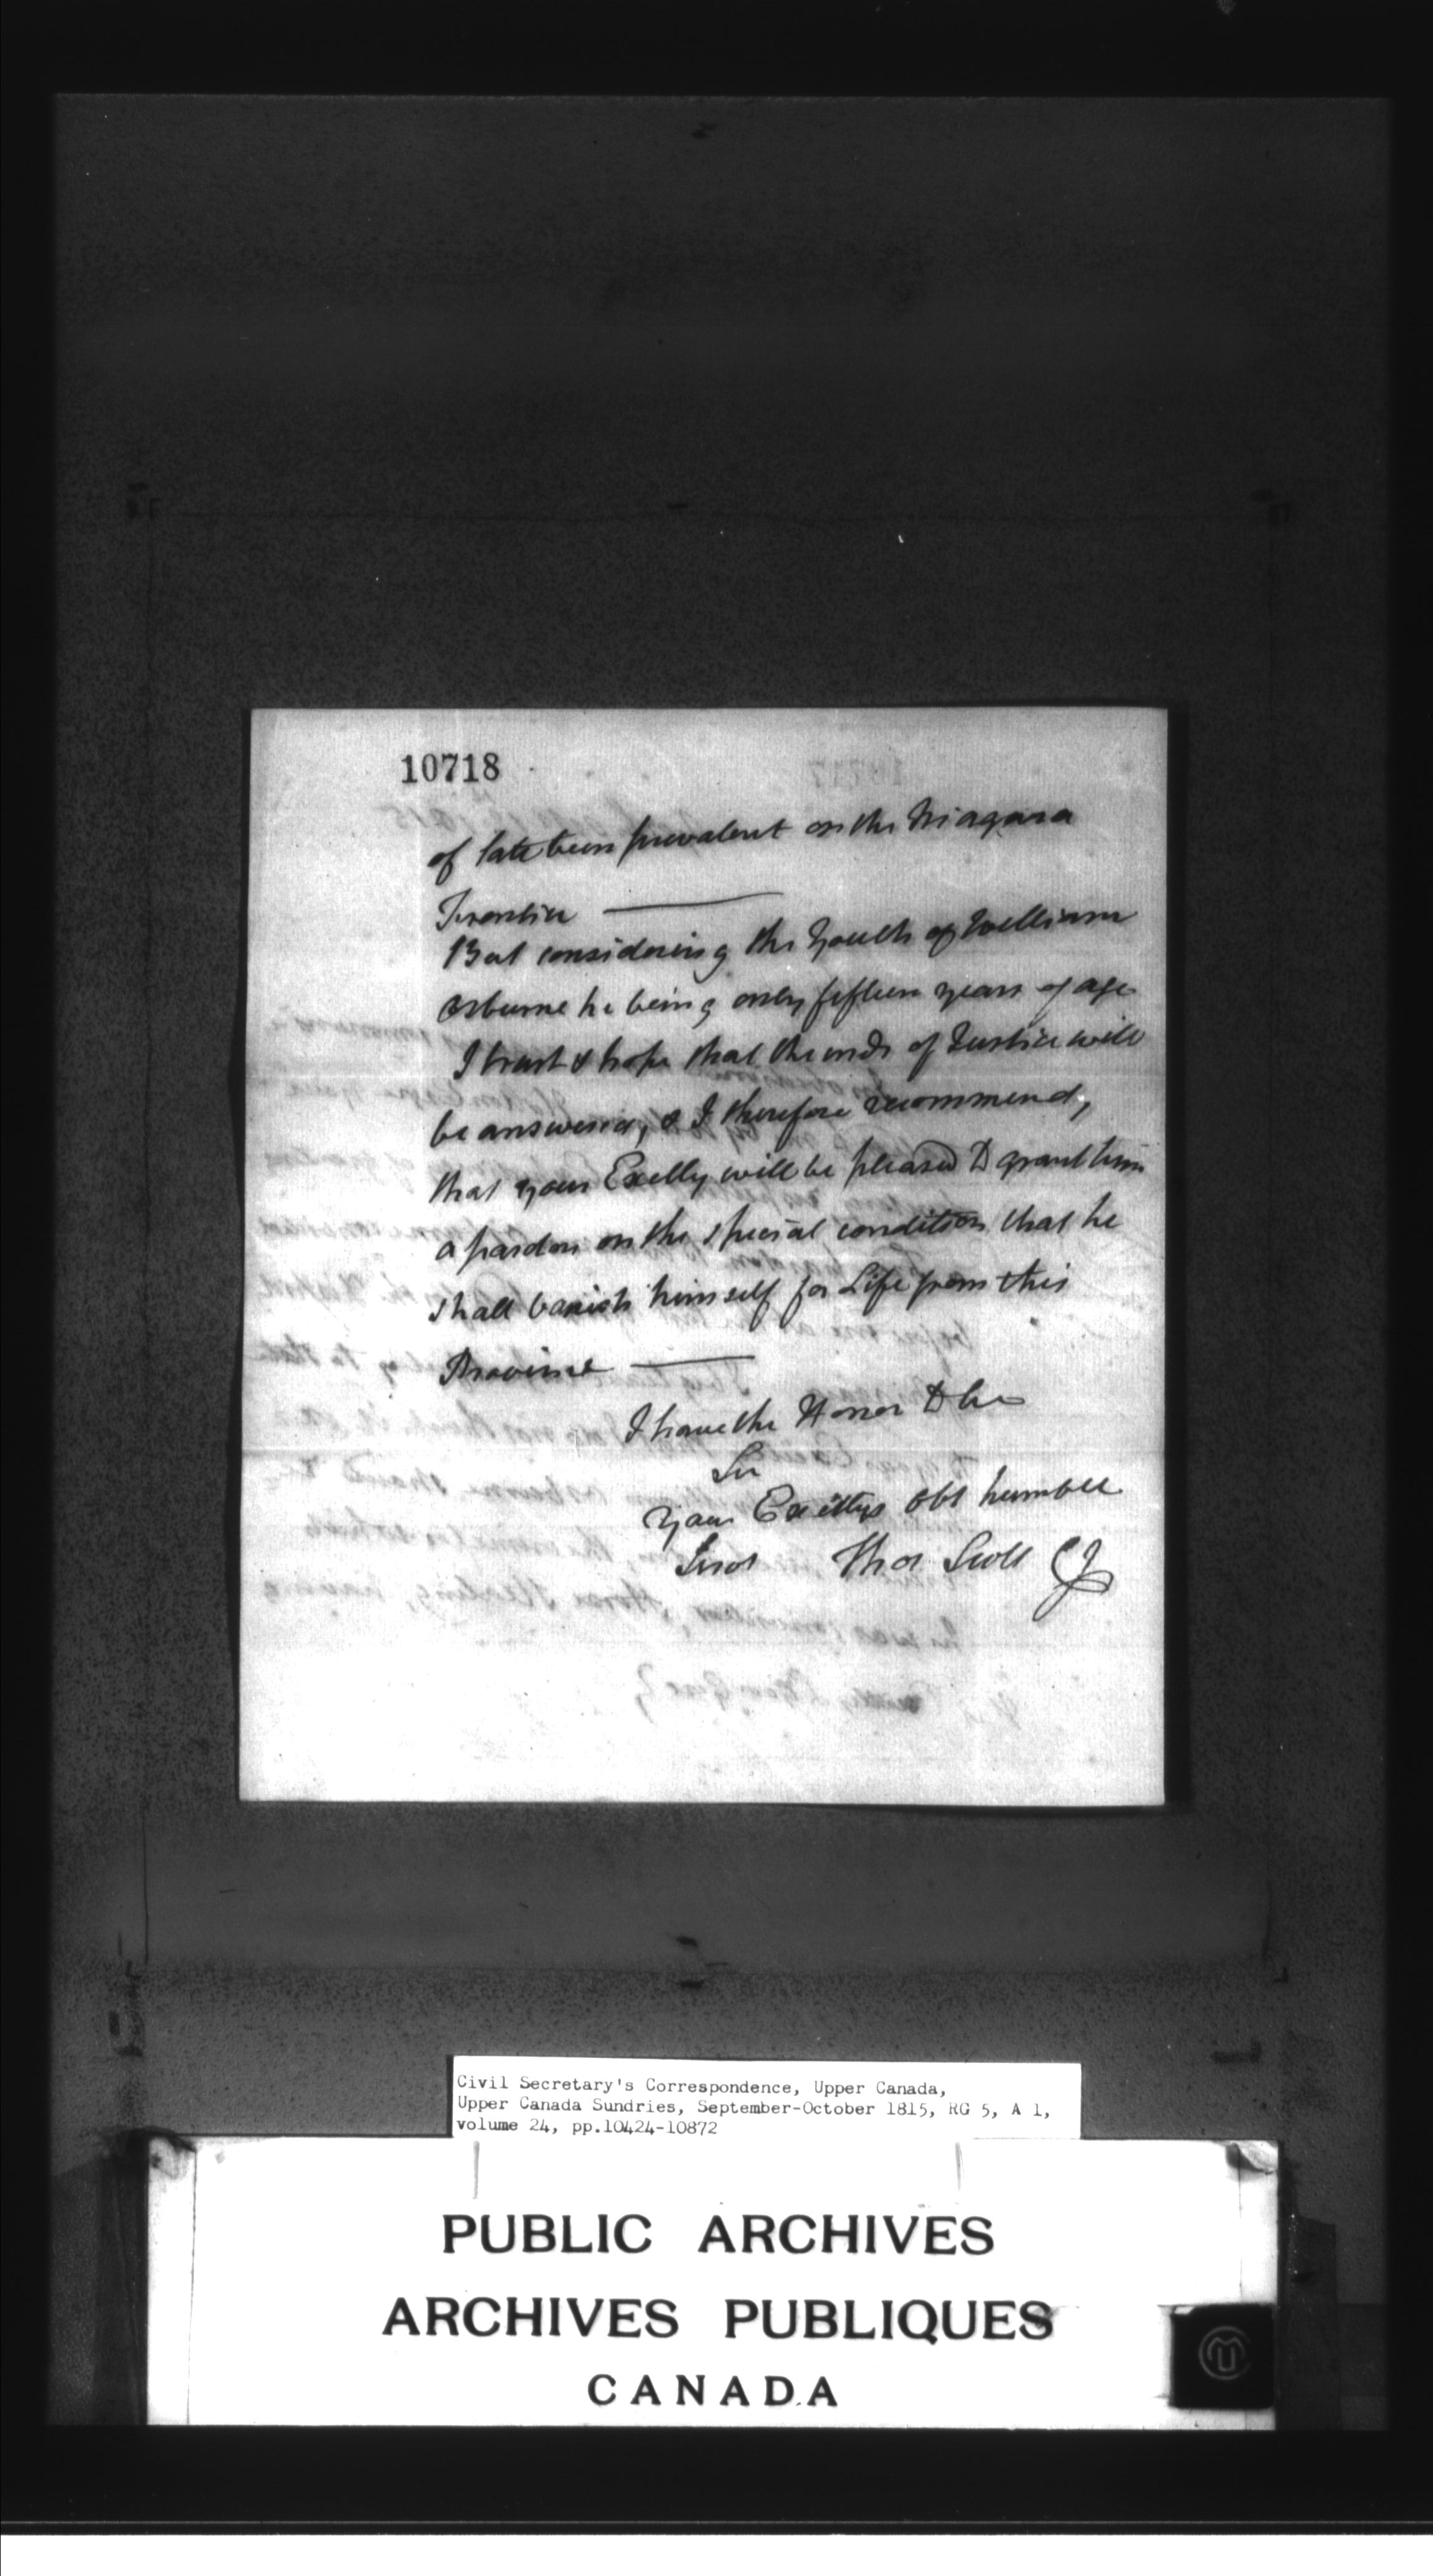 10718
of late been prevalent on the Niagara
Frontier
But considering the Youth of William
Osburne he being only fifteen years of age
I trust & hope that the ends of Justice will
be answered, & I therefore recommend,
that your Exelly will be pleased to grant him
a pardon on the special condition that he
shall banish himself for Life from this
Province
I have the Honor to be
Sir
Your Exellys Obt humble
Servt Thos Scott CJ
Civil Secretary's Correspondence, Upper Canada,
Upper Canada Sundries, September-October 1815, RG 5, A 1,
volume 24, pp.10424-10872
PUBLIC ARCHIVES
ARCHIVES PUBLIQUES
CANADA